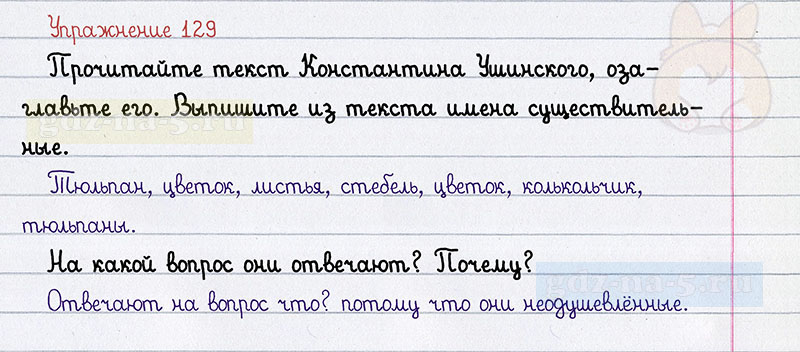 Упражнение 129
Прочитайте текст Константина Ушинского, оза-
главьте его. Выпишите из текста имена существитель-
ные.
Тюльпан, цветок, листья, стебель, цветок, колькольчик,
тюльпаны.
На какой вопрос они отвечают? Почему?
Отвечают на вопрос что? потому что они неодушевлённые.
gdz-na-5.ru
gdz-na-5.ru